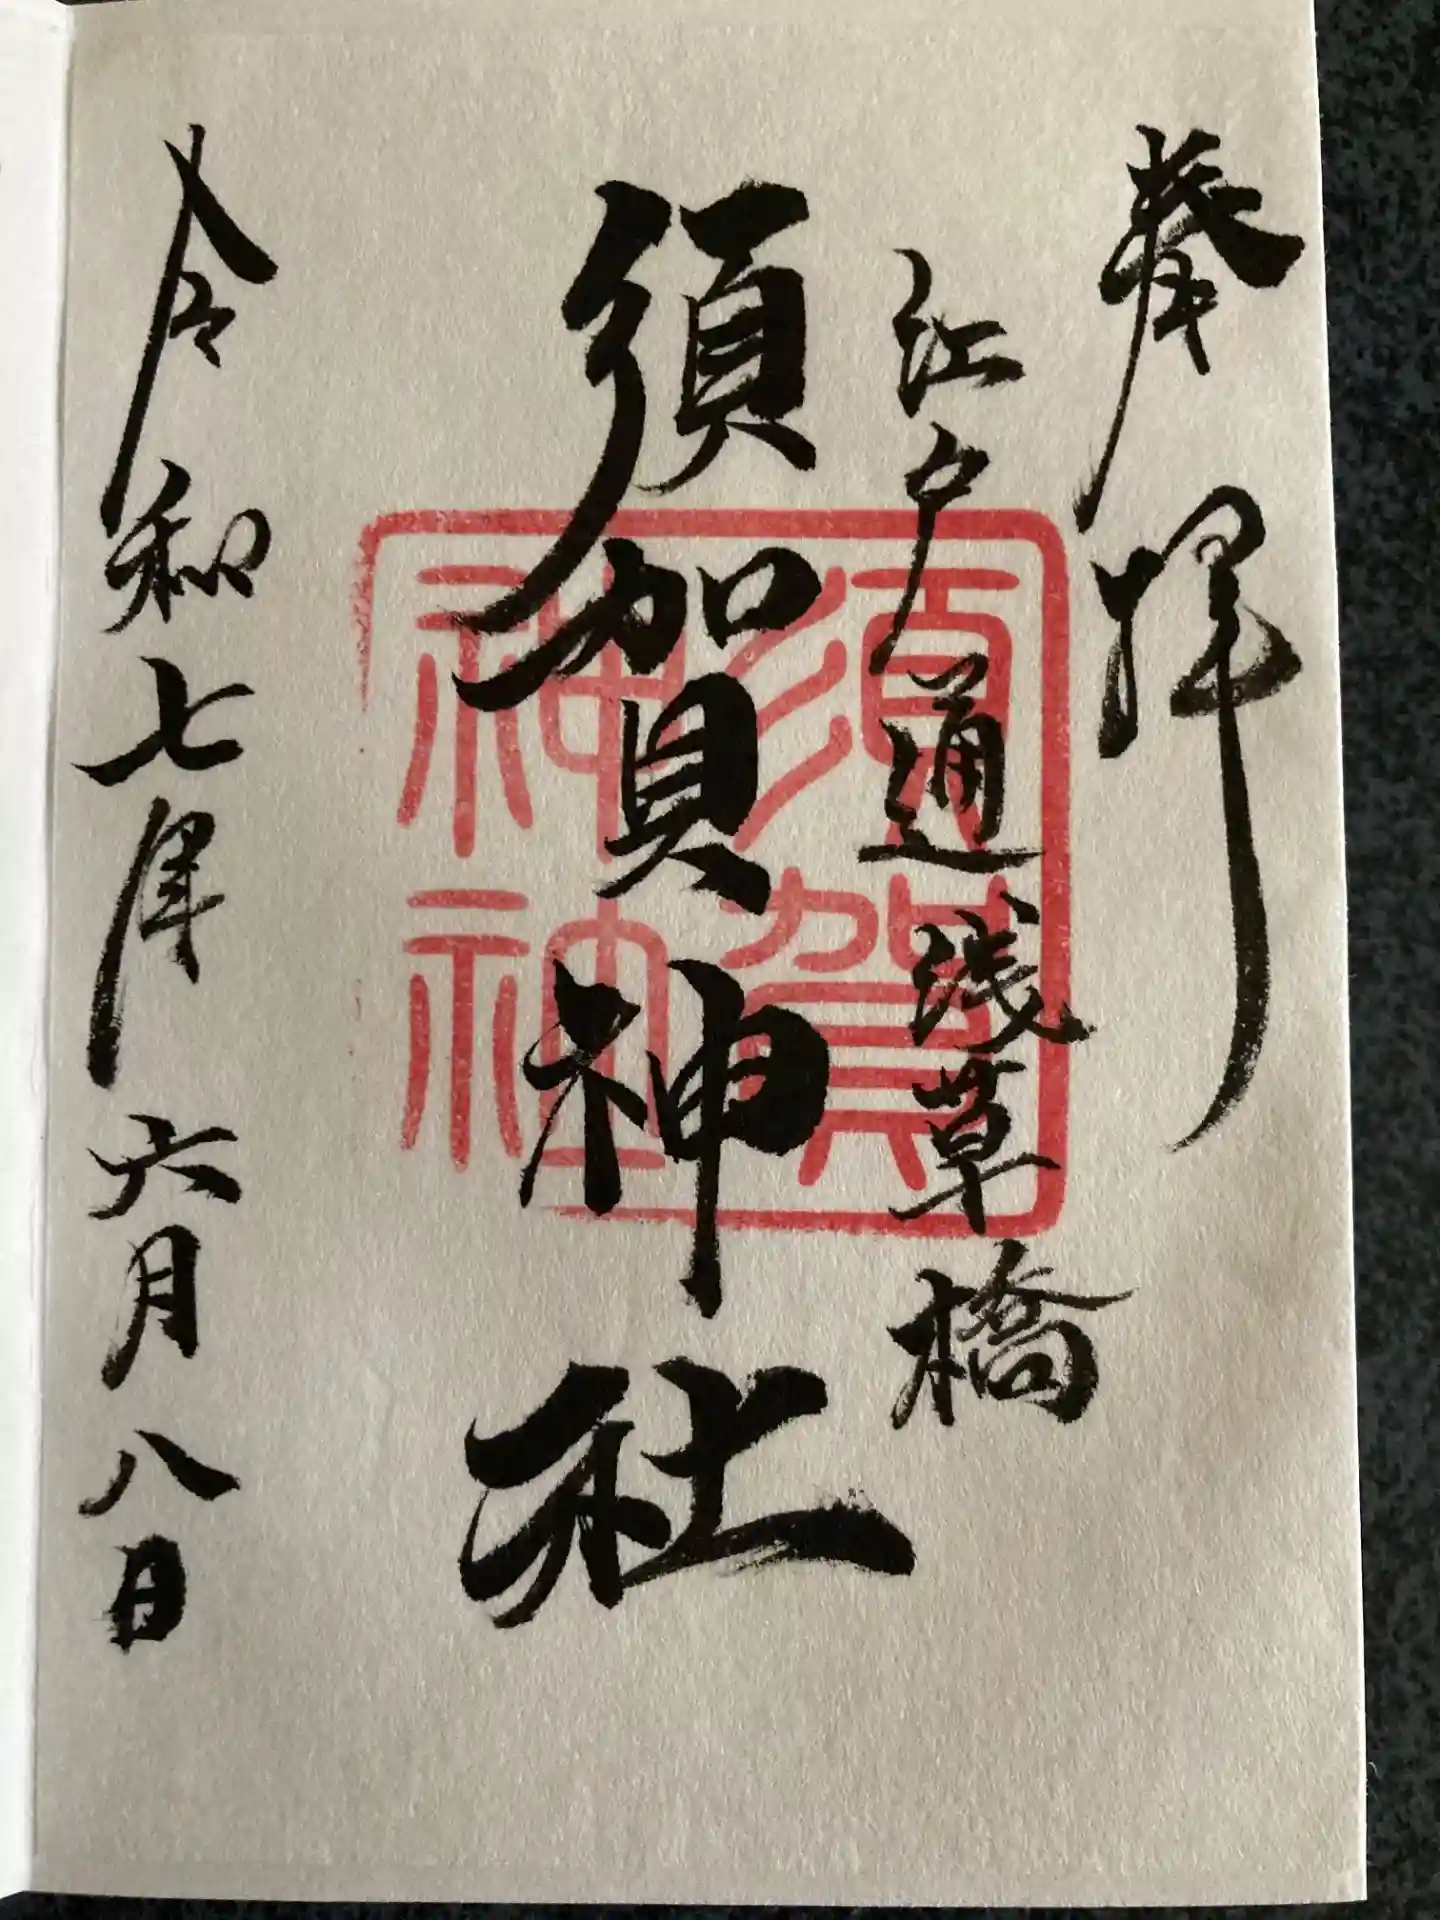 奉拝
江戸通浅草橋
須賀神社
須賀
神社
令和七年六月八日